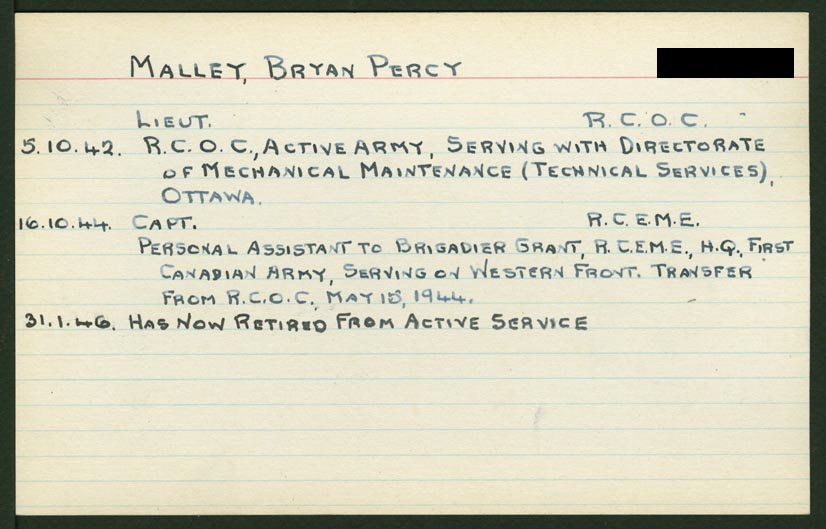 MALLEY, BRYAN PERCY
LIEUT. R.C.O.C.
5.10.42. R.C.O.C., ACTIVE ARMY, SERVING WITH DIRECTORATE
OF MECHANICAL MAINTENANCE (TECHNICAL SERVICES),
OTTAWA.
16.10.44. CAPT. R.C.E.M.E.
PERSONAL ASSISTANT TO BRIGADIER GRANT, R.C.E.M.E., H.Q., FIRST
CANADIAN ARMY, SERVING ON WESTERN FRONT. TRANSFER
FROM R.C.O.C., MAY 15, 1944.
31.1.46. HAS NOW RETIRED FROM ACTIVE SERVICE